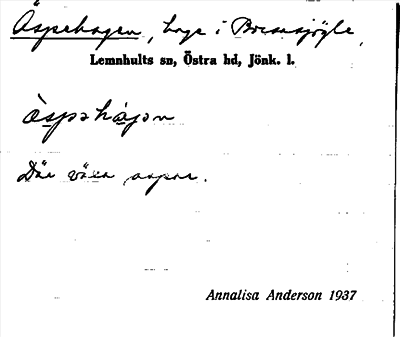 Äspehagen, hage i Bocksjögle,
Lemnhults sn, Östra hd, Jönk. l.
äspəhágən
Där växa aspar.
Annalisa Anderson 1937